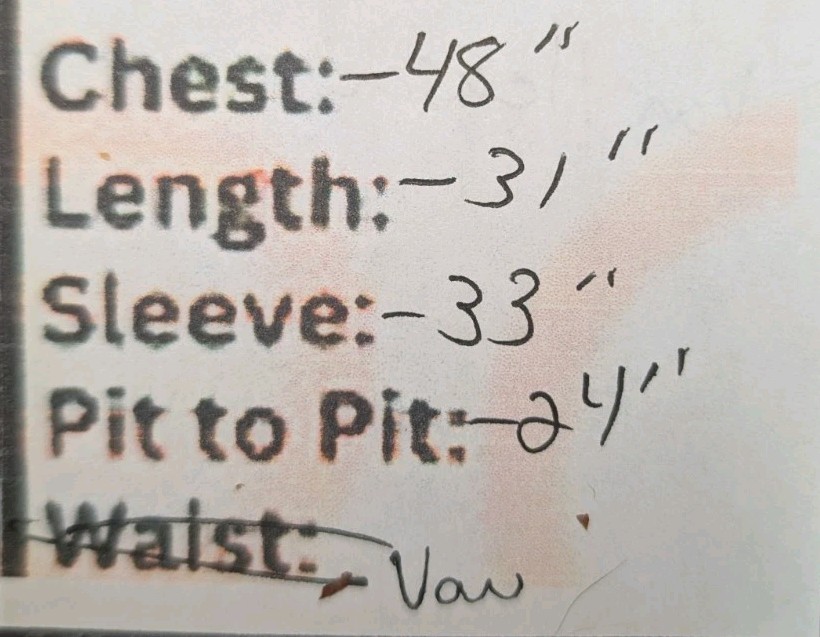 Chest:-48"
Length:-31"
Sleeve:-33"
Pit to Pit:-24"
Waist: